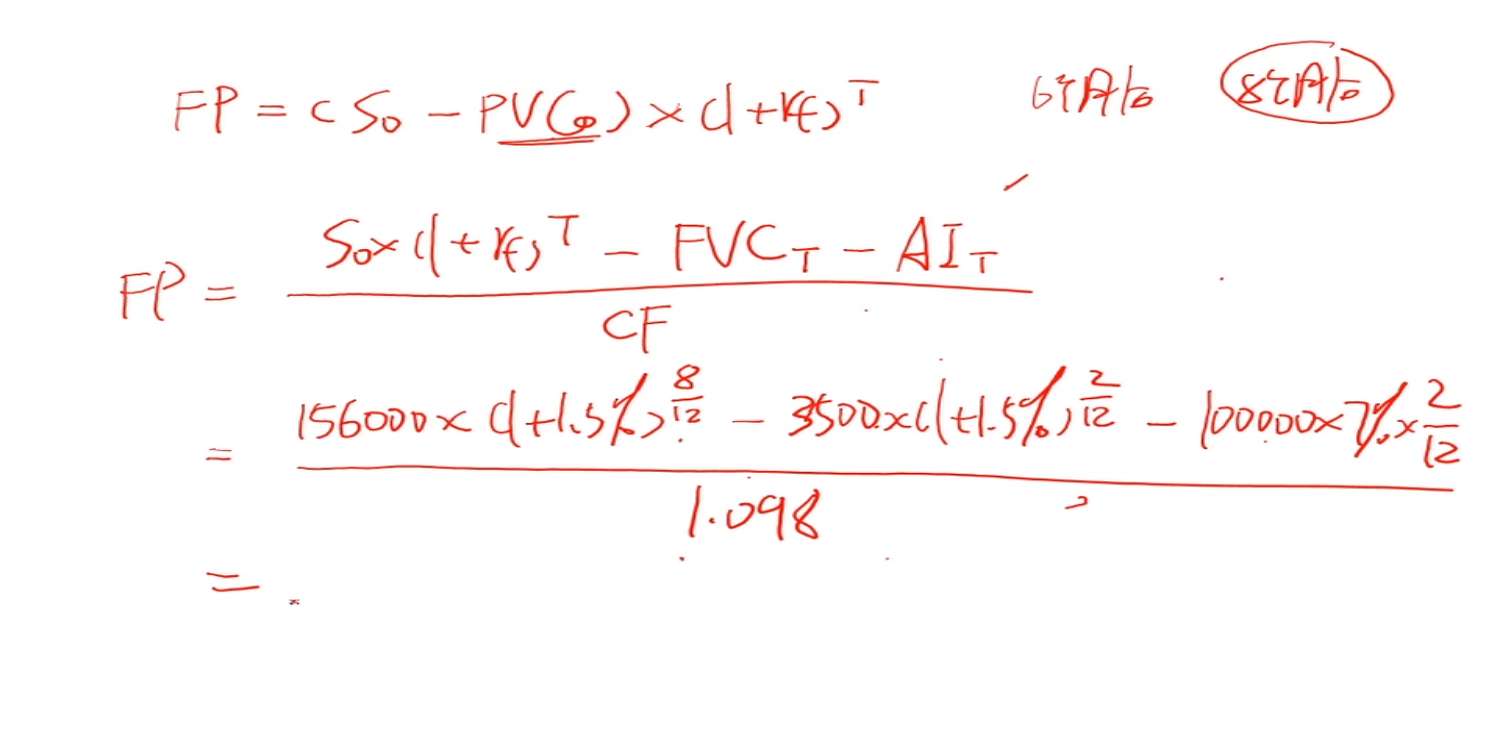 FP = (S₀ - PVC₀) × (1+rf)ᵀ 6个月后 8个月后
S₀×(1+rf)ᵀ - FVC_T - AI_T
FP =
CF
156000×(1+1.5%)^8/12 - 3500×(1+1.5%)^2/12 - 100000×7%×2/12
=
1.098
=